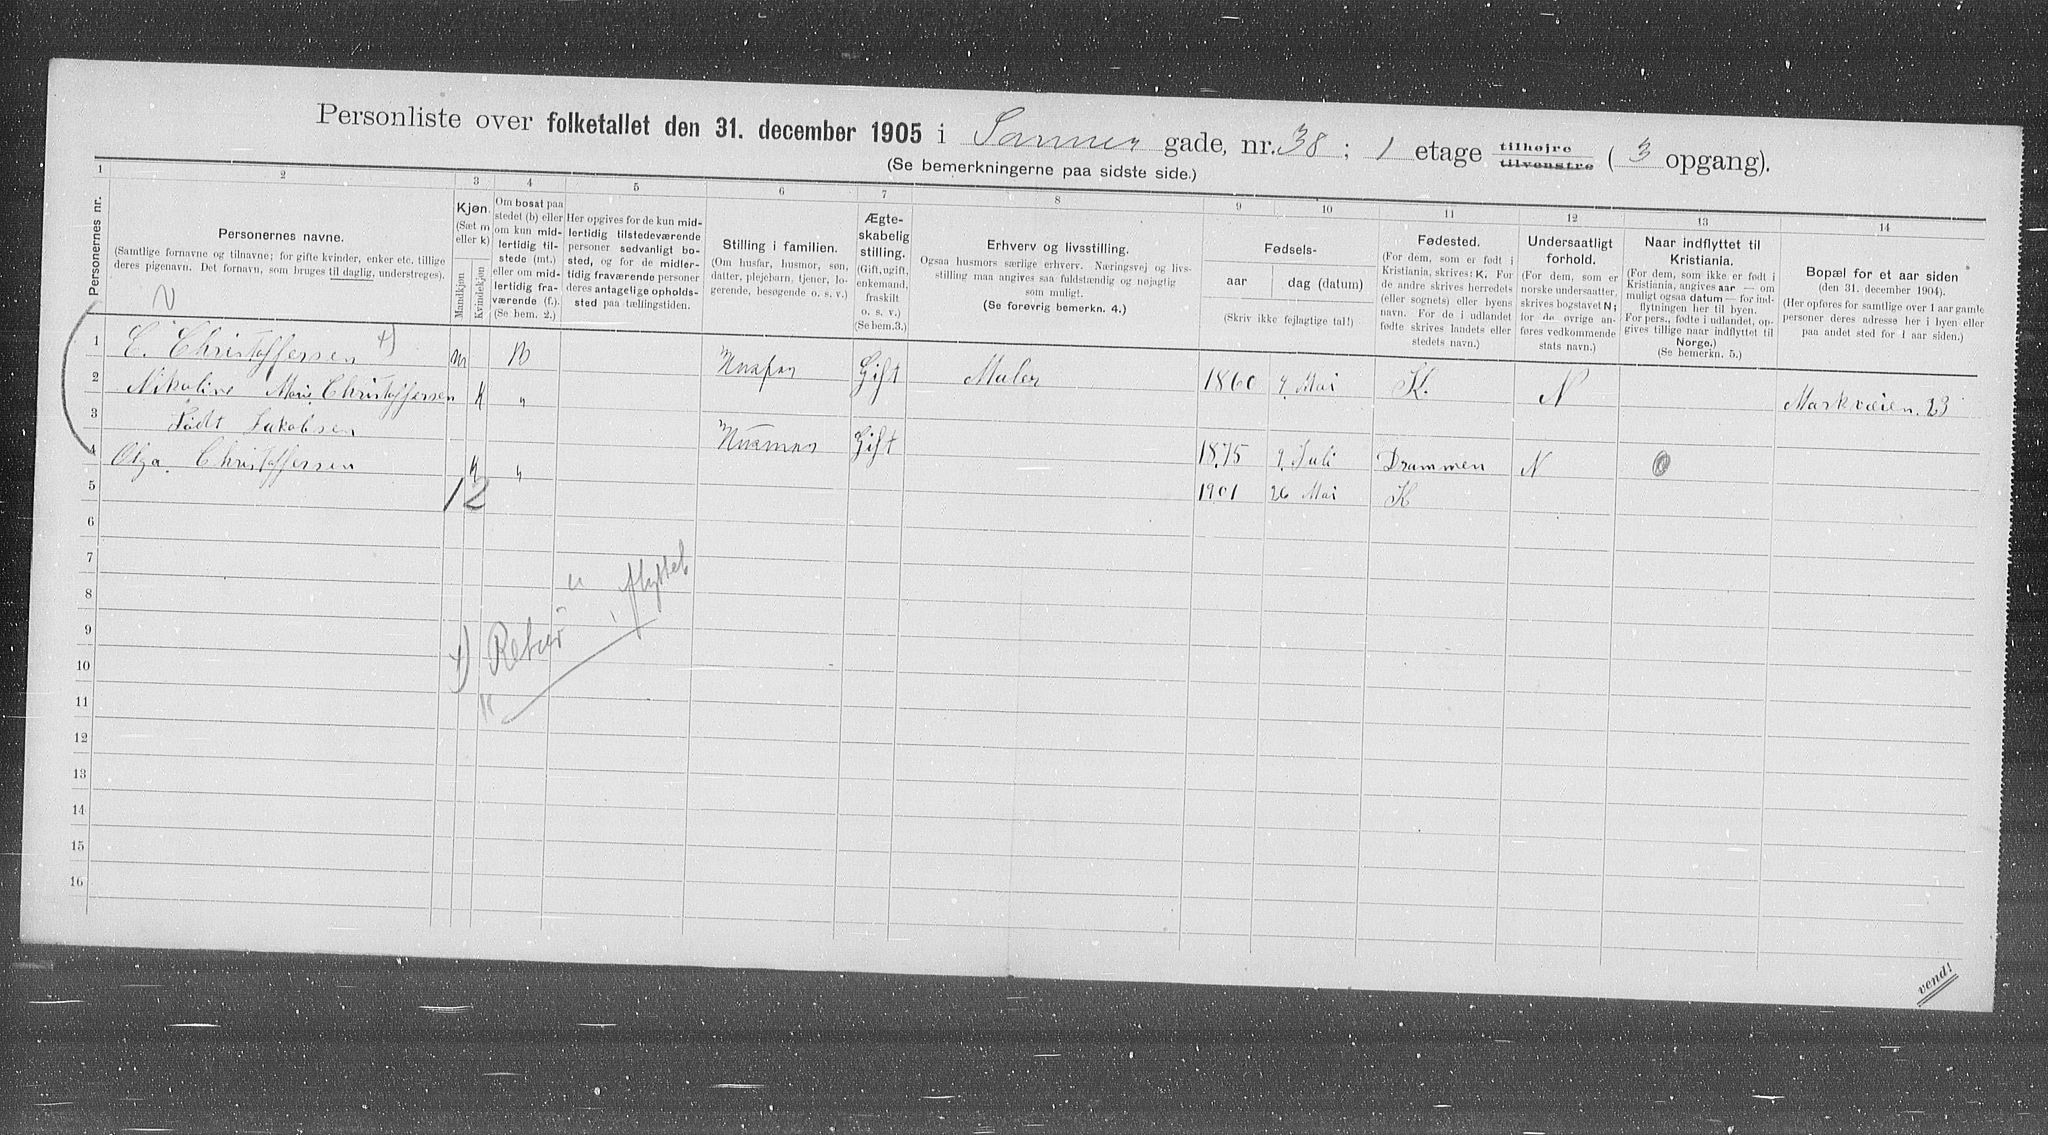 Personliste over folketallet den 31. december 1905 i Sanner gade, nr. 38 ; 1 etage tilhøjre tilvenstre ( 3 opgang).
(Se bemerkningerne paa sidste side.)
1 2 3 4 5 6 7 8 9 10 11 12 13 14
Personernes nr.
Personernes navne.
(Samtlige fornavne og tilnavne; for gifte kvinder, enker etc. tillige
deres pigenavn. Det fornavn, som bruges til daglig, understreges).
Kjøn.
(Sæt m
eller k)
Mandkjøn
Kvindekjøn
Om bosat paa
stedet (b) eller
om kun mid-
lertidig til-
stede (mt.)
eller om mid-
lertidig fra-
værende (f.).
(Se bem. 2.)
Her opgives for de kun mid-
lertidig tilstedeværende
personer sedvanligt bo-
sted, og for de midler-
tidig fraværende personer
deres antagelige opholds-
sted paa tællingstiden.
Stilling i familien.
(Om husfar, husmor, søn,
datter, plejebarn, tjener, lo-
gerende, besøgende o. s. v.)
Ægte-
skabelig
stilling.
(Gift, ugift,
enkemand,
fraskilt
o. s. v.)
(Se bem. 3.)
Erhverv og livsstilling.
Ogsaa husmors særlige erhverv. Næringsvej og livs-
stilling maa angives saa fuldstændig og nøjagtig
som muligt.
(Se forøvrig bemerkn. 4.)
Fødsels-
aar
dag (datum)
(Skriv ikke fejlagtige tal!)
Fødested.
(For dem, som er født i
Kristiania, skrives: K. For
de andre skrives herredets
(eller sognets) eller byens
navn. For de i udlandet
fødte skrives landets eller
stedets navn.)
Undersaatligt
forhold.
(For dem, som er
norske undersaatter,
skrives bogstavet N;
for de øvrige an-
føres vedkommende
stats navn.)
Naar indflyttet til
Kristiania.
(For dem, som ikke er født i
Kristiania, angives aar — om
muligt ogsaa datum — for ind-
flytningen her til byen.
For pers., fødte i udlandet, op-
gives tillige naar indflyttet til
Norge.)
(Se bemerkn. 5.)
Bopæl for et aar siden
(den 31. december 1904).
(Her opføres for samtlige over 1 aar gamle
personer deres adresse her i byen eller
paa andet sted for 1 aar siden.)
1 C. Christoffersen x) m B Husfar Gift Maler 1860 9 Mai K. N Markveien. 23
2 Nikoline Marie Christoffersen k "
3 Født Jakobsen Husmor Gift 1875 9 Juli Drammen N
4 Olga. Christoffersen k " 1901 26 Mai K
5 1 2
6
7
8
9
10
11
12
13
14
15
16
x) Retur flyttet
vend!